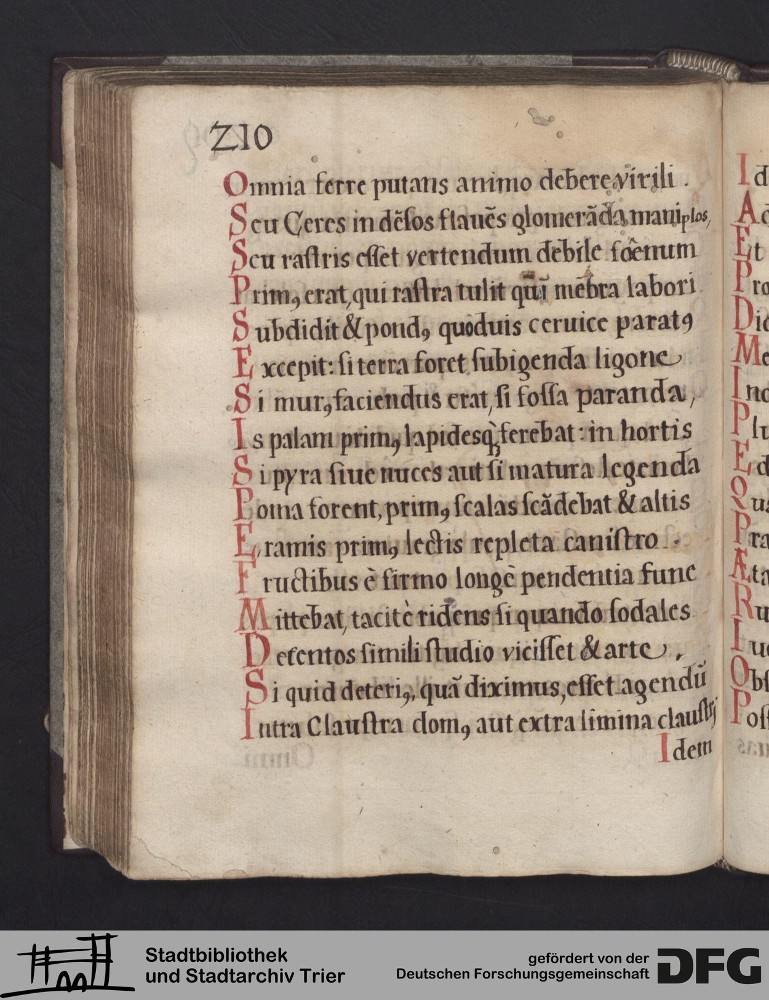 210
Omnia ferre putans animo debere virili .
Seu Ceres in dẽsos flauẽs glomerãda maniplos,
Seu rastris esset vertendum debile foênum
Primꝯ erat, qui rastra tulit quiĩ mẽbra labori
Subdidit & pondꝯ quoduis ceruice paratꝯ
Excepit: si terra foret subigenda ligone
Si murꝯ faciendus erat, si fossa paranda,
Is palam primꝯ lapidesq; ferebat: in hortis
Si pyra siue nuces aut si matura legenda
Poma forent, primꝯ scalas scãdebat & altis
E, ramis primꝯ lectis repleta canistro .
Fructibus è firmo longè pendentia fune
Mittebat, tacitè ridens si quando sodales
Defentos simili studio vicisset & arte .
Si quid deteriꝯ, quã diximus, esset agendũ
Intra Claustra domꝯ aut extra limina claustri
Idem
Id
A
Et
Pro
Dic
Me
Ind
Plu
Ed
Qus
Pra
Æta
Ru
Iuc
Obs
Pos
Stadtbibliothek
und Stadtarchiv Trier
gefördert von der
Deutschen Forschungsgemeinschaft
DFG